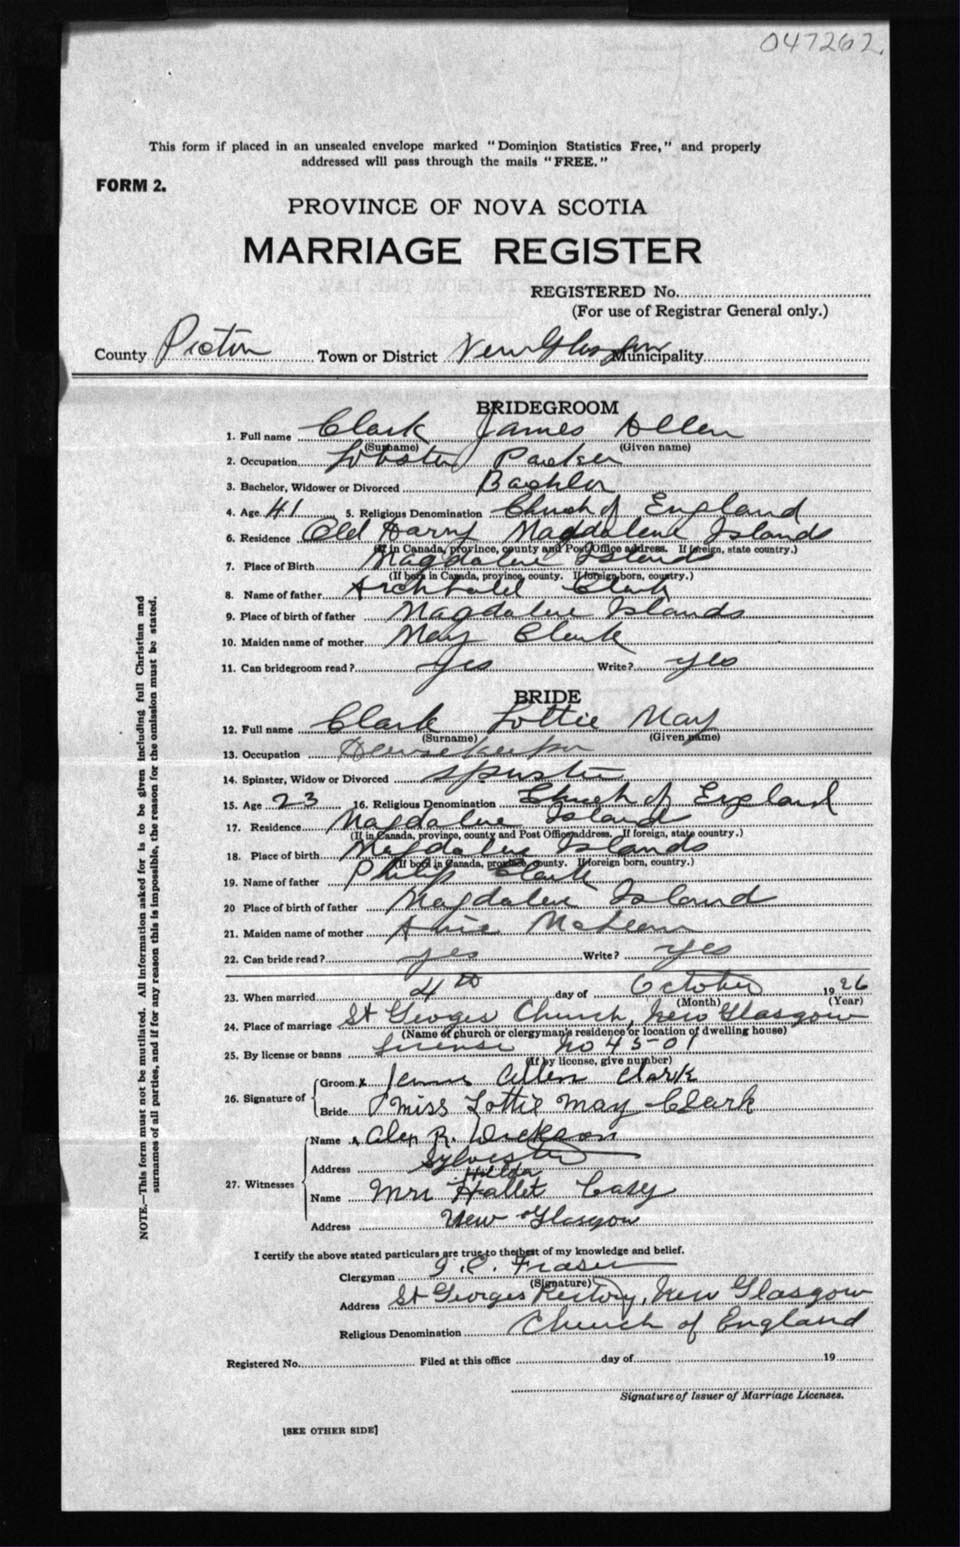 047262.
This form if placed in an unsealed envelope marked "Dominion Statistics Free," and properly
addressed will pass through the mails "FREE."
FORM 2.
PROVINCE OF NOVA SCOTIA
MARRIAGE REGISTER
REGISTERED No.
(For use of Registrar General only.)
County Pictou Town or District New Glasgow Municipality
BRIDEGROOM
1. Full name Clark James Allen
(Surname) (Given name)
2. Occupation Lobster Packer
3. Bachelor, Widower or Divorced Bachlor
4. Age 41 5. Religious Denomination Church of England
6. Residence Old Harry Magdalene Islands
(If in Canada, province, county and Post Office address. If foreign, state country.)
7. Place of Birth Magdalene Islands
(If born in Canada, province, county. If foreign born, country.)
8. Name of father Archibald Clark
9. Place of birth of father Magdalene Islands
10. Maiden name of mother May Clark
11. Can bridegroom read? yes Write? yes
BRIDE
12. Full name Clark Lottie May
(Surname) (Given name)
13. Occupation Housekeeper
14. Spinster, Widow or Divorced Spinster
15. Age 23 16. Religious Denomination Church of England
17. Residence Magdalene Island
(If in Canada, province, county and Post Office address. If foreign, state country.)
18. Place of birth Magdalene Islands
(If born in Canada, province, county. If foreign born, country.)
19. Name of father Philip Clark
20 Place of birth of father Magdalen Island
21. Maiden name of mother McLean
22. Can bride read? yes Write? yes
23. When married 4th day of October 1926
(Month) (Year)
24. Place of marriage St Georges Church, New Glasgow
(Name of church or clergyman's residence or location of dwelling house)
25. By license or banns License No 45-01
(If by license, give number)
26. Signature of Groom x James Allen Clark
Bride Miss Lottie May Clark
27. Witnesses Name Alex R. Dickson
Address Sylvester
Hilda
Name Mrs Hallet Casey
Address New Glasgow
I certify the above stated particulars are true to the best of my knowledge and belief.
Clergyman Fraser
(Signature)
Address St Georges Rectory, New Glasgow
Religious Denomination Church of England
Registered No. Filed at this office day of 19
Signature of Issuer of Marriage Licenses.
[SEE OTHER SIDE]
NOTE.—This form must not be mutilated. All information asked for is to be given including full Christian and
surnames of all parties, and if for any reason this is impossible, the reason for the omission must be stated.